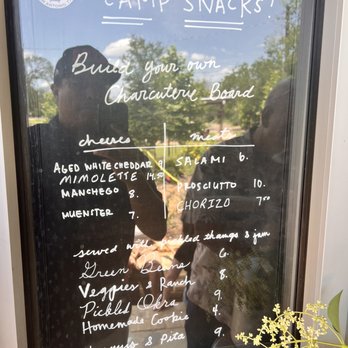 CAMP SNACKS!
Build your own
Charcuterie Board
cheeses meats
AGED WHITE CHEDDAR 9 SALAMI 6.
MIMOLETTE 14.50
MANCHEGO 8. PROSCIUTTO 10.
MUENSTER 7. CHORIZO 7.00
served with pickled thangs & jam
Green 6.
Veggies & Ranch 8.
Pickled Okra 9.
Homemade Cookie 4.
& Pita 9.